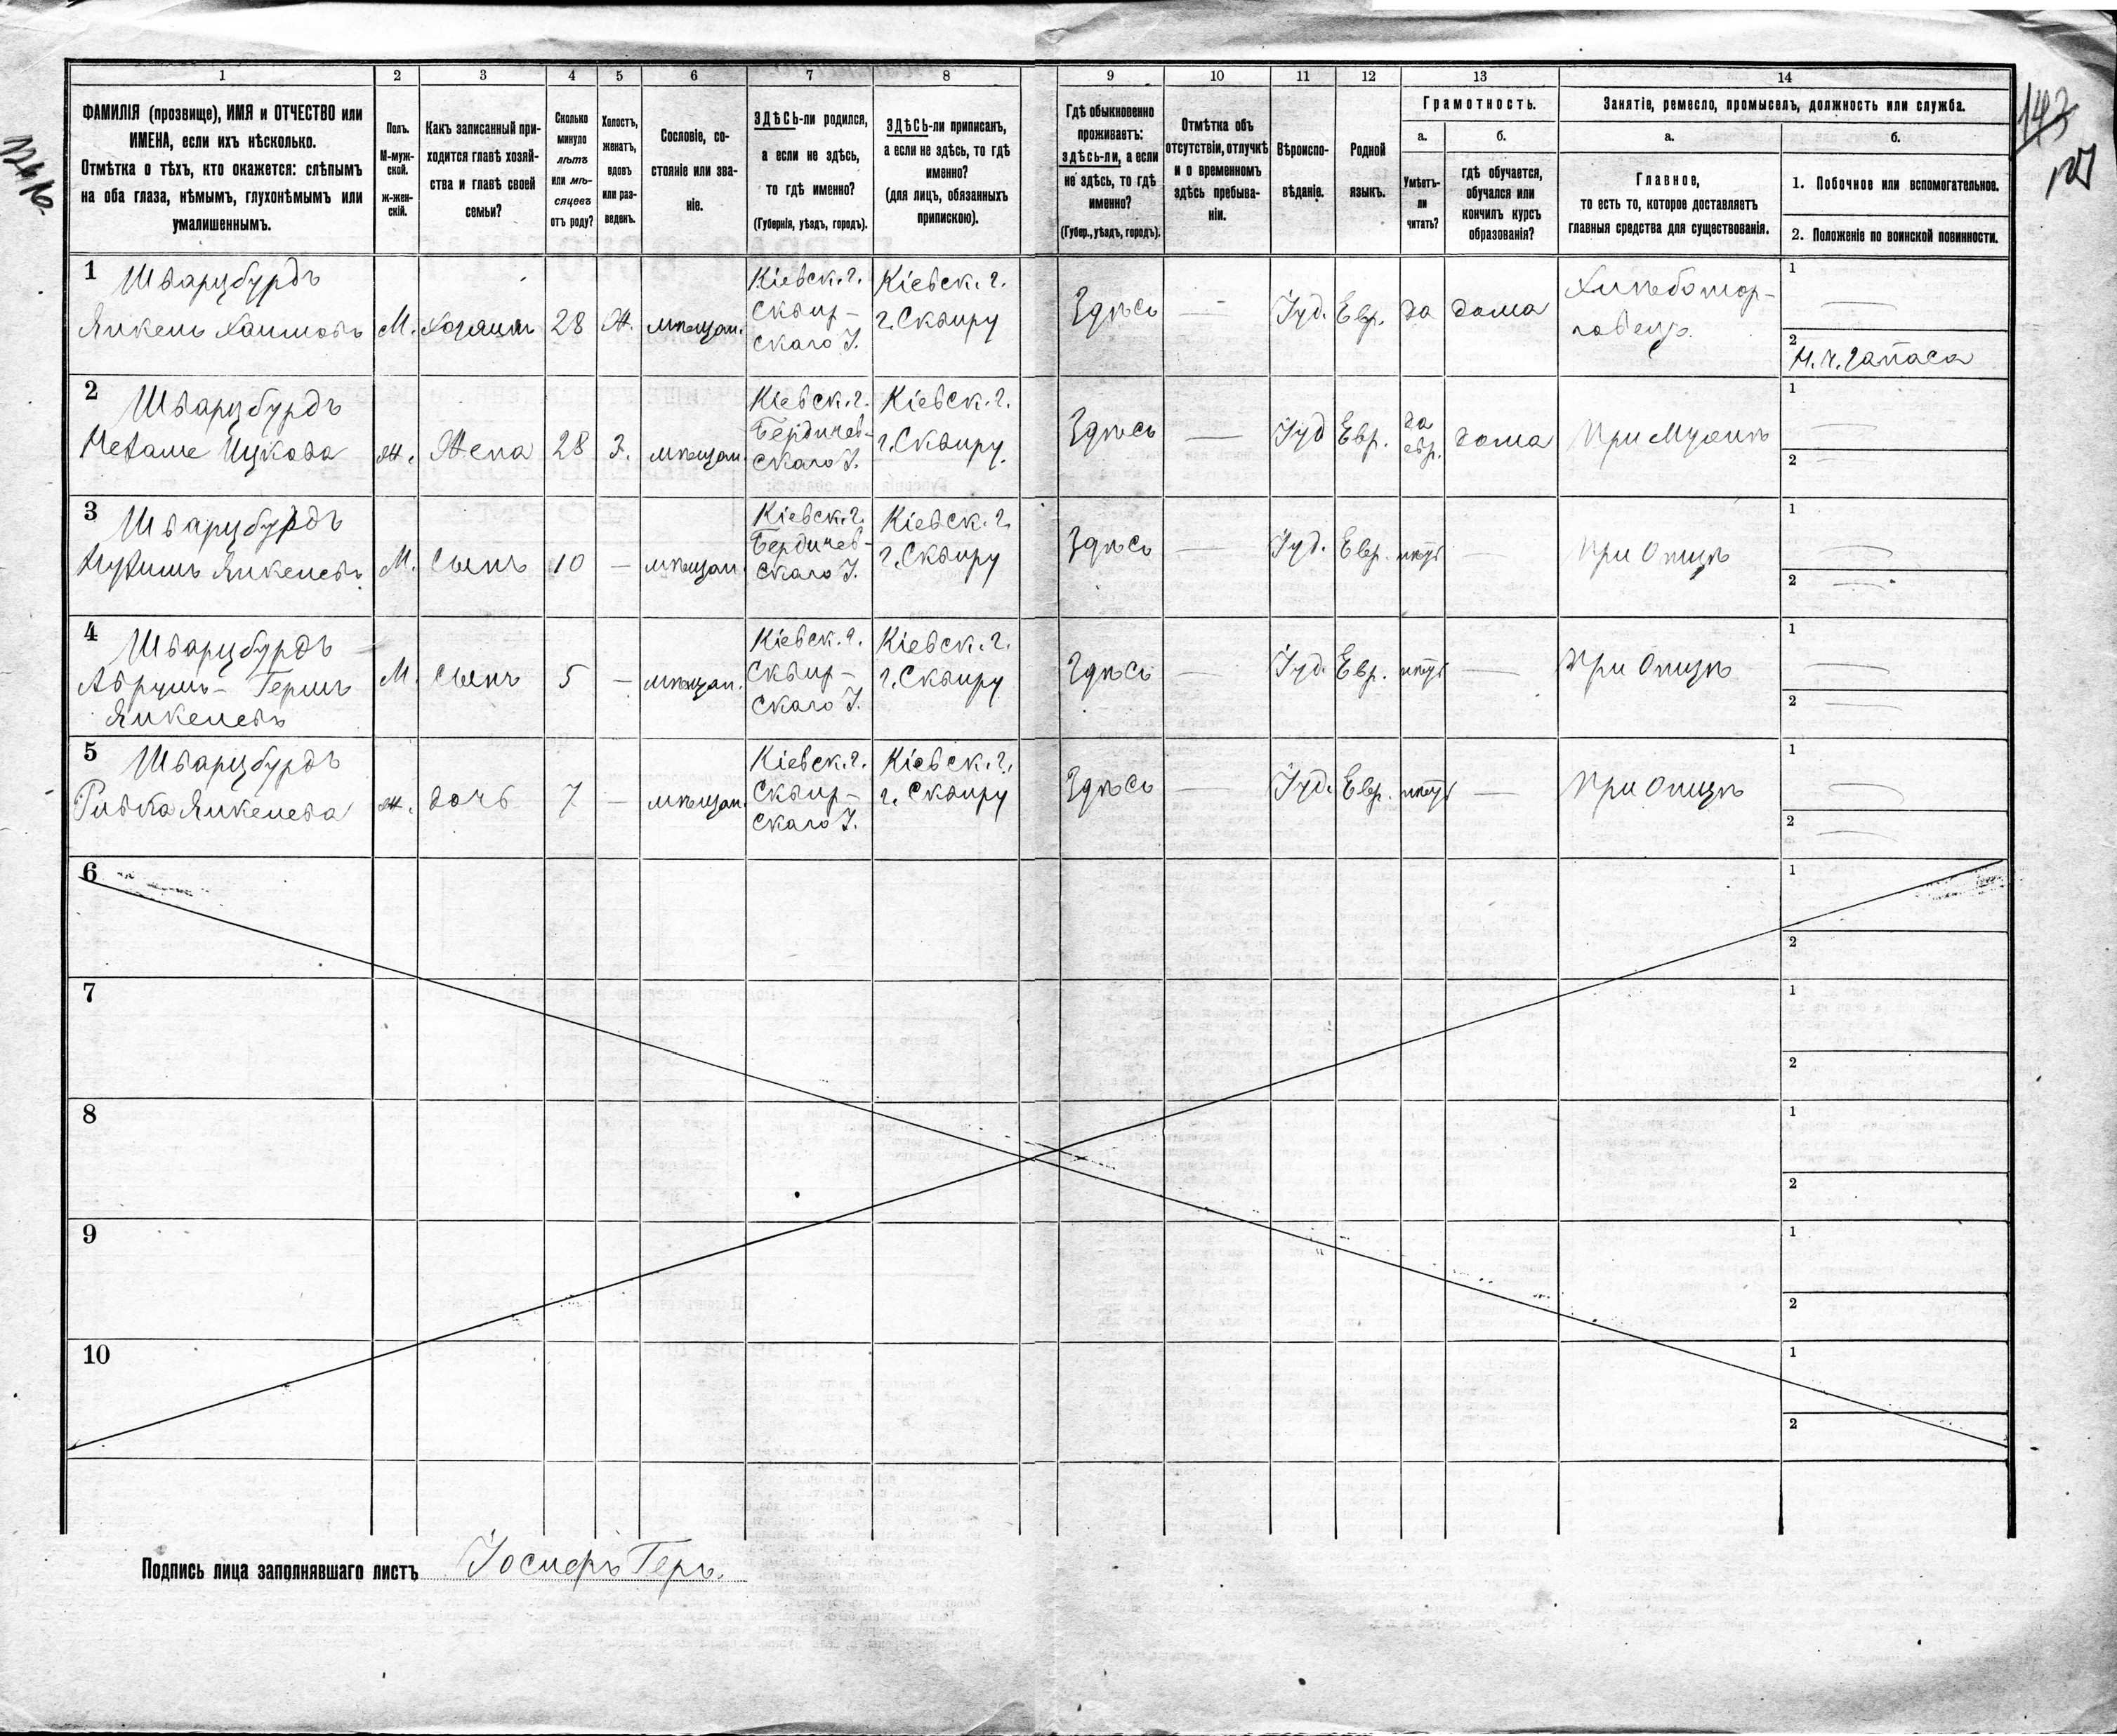 1 2 3 4 5 6 7 8 9 10 11 12 13 14
ФАМИЛІЯ (прозвище), ИМЯ и ОТЧЕСТВО или
ИМЕНА, если ихъ нѣсколько.
Отмѣтка о тѣхъ, кто окажется: слѣпымъ
на оба глаза, нѣмымъ, глухонѣмымъ или
умалишеннымъ.
Полъ.
М-муж-
ской.
Ж-жен-
скій.
Какъ записанный при-
ходится главѣ хозяй-
ства и главѣ своей
семьи?
Сколько
минуло
лѣтъ
или мѣ-
сяцевъ
отъ роду?
Холостъ,
женатъ,
вдовъ
или раз-
веденъ.
Сословіе, со-
стояніе или зва-
ніе.
ЗДѢСЬ-ли родился,
а если не здѣсь,
то гдѣ именно?
(Губернія, уѣздъ, городъ).
ЗДѢСЬ-ли приписанъ,
а если не здѣсь, то гдѣ
именно?
(для лицъ, обязанныхъ
припискою).
Гдѣ обыкновенно
проживаетъ:
здѣсь-ли, а если
не здѣсь, то гдѣ
именно?
(Губер., уѣздъ, городъ).
Отмѣтка объ
отсутствіи, отлучкѣ
и о временномъ
здѣсь пребыва-
ніи.
Вѣроиспо-
вѣданіе.
Родной
языкъ.
Грамотность.
а.
Умѣетъ-
ли
читать?
б.
гдѣ обучается,
обучался или
кончилъ курсъ
образованія?
Занятіе, ремесло, промыселъ, должность или служба.
а.
Главное,
то есть то, которое доставляетъ
главныя средства для существованія.
б.
1. Побочное или вспомогательное.
2. Положеніе по воинской повинности.
143
1
Шварцбурдъ
Янкель Хаимовъ
М.
Хозяинъ
28
Ж.
мѣщан.
Кіевск. г.
Сквир-
скаго У.
Кіевск. г.
г. Сквиру
Здѣсь
—
Іуд.
Евр.
да
дома
Хлѣботор-
говецъ.
1 —
2
Н. Ч. Запаса
2
Шварцбурдъ
Нехаме Ицкова
ж.
Жена
28
З.
мѣщан.
Кіевск. г.
Бердичев-
скаго У.
Кіевск. г.
г. Сквиру.
Здѣсь
—
Іуд
Евр.
да
евр.
дома
При Мужѣ
1 —
2 —
3
Шварцбурдъ
Янкелевъ
М.
Сынъ
10
—
мѣщан.
Кіевск. г.
Бердичев-
скаго У.
Кіевск. г.
г. Сквиру
Здѣсь
—
Іуд.
Евр.
нѣтъ
—
При Отцѣ
1 —
2 —
4
Шварцбурдъ
Абрумъ-Гершъ
Янкелевъ
М.
Сынъ
5
—
мѣщан.
Кіевск. г.
Сквир-
скаго У.
Кіевск. г.
г. Сквиру
Здѣсь
—
Іуд.
Евр.
нѣтъ
—
При Отцѣ
1 —
2 —
5
Шварцбурдъ
Ривка Янкелева
ж.
дочь
7
—
мѣщан.
Кіевск. г.
Сквир-
скаго У.
Кіевск. г.
г. Сквиру
Здѣсь
—
Іуд.
Евр.
нѣтъ
—
При Отцѣ
1 —
2 —
6
1
2
7
1
2
8
1
2
9
1
2
10
1
2
Подпись лица заполнявшаго листъ Іосифъ Геръ.